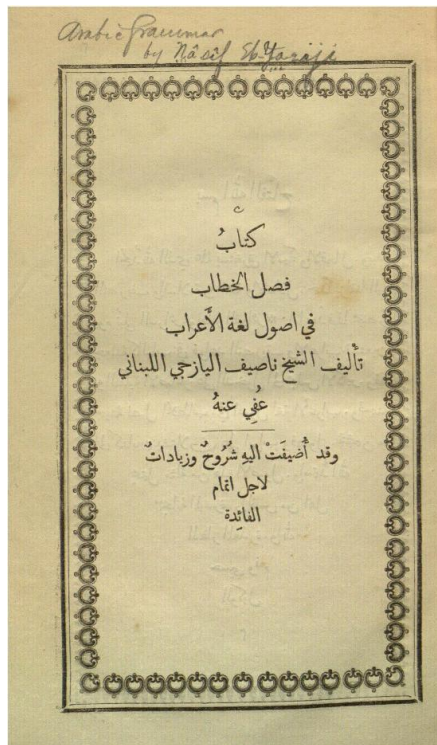 Arabic Grammar
by Nâsîf El-Yazajî
كتابُ
فصل الخطاب
في اصول لغة الأَعراب
تأليف الشيخ ناصيف اليازجي اللبناني
عُفِي عنهُ
وقد أُضيفَتْ اليهِ شُرُوحٌ وزيادات
لاجل اتمام
الفائِدة